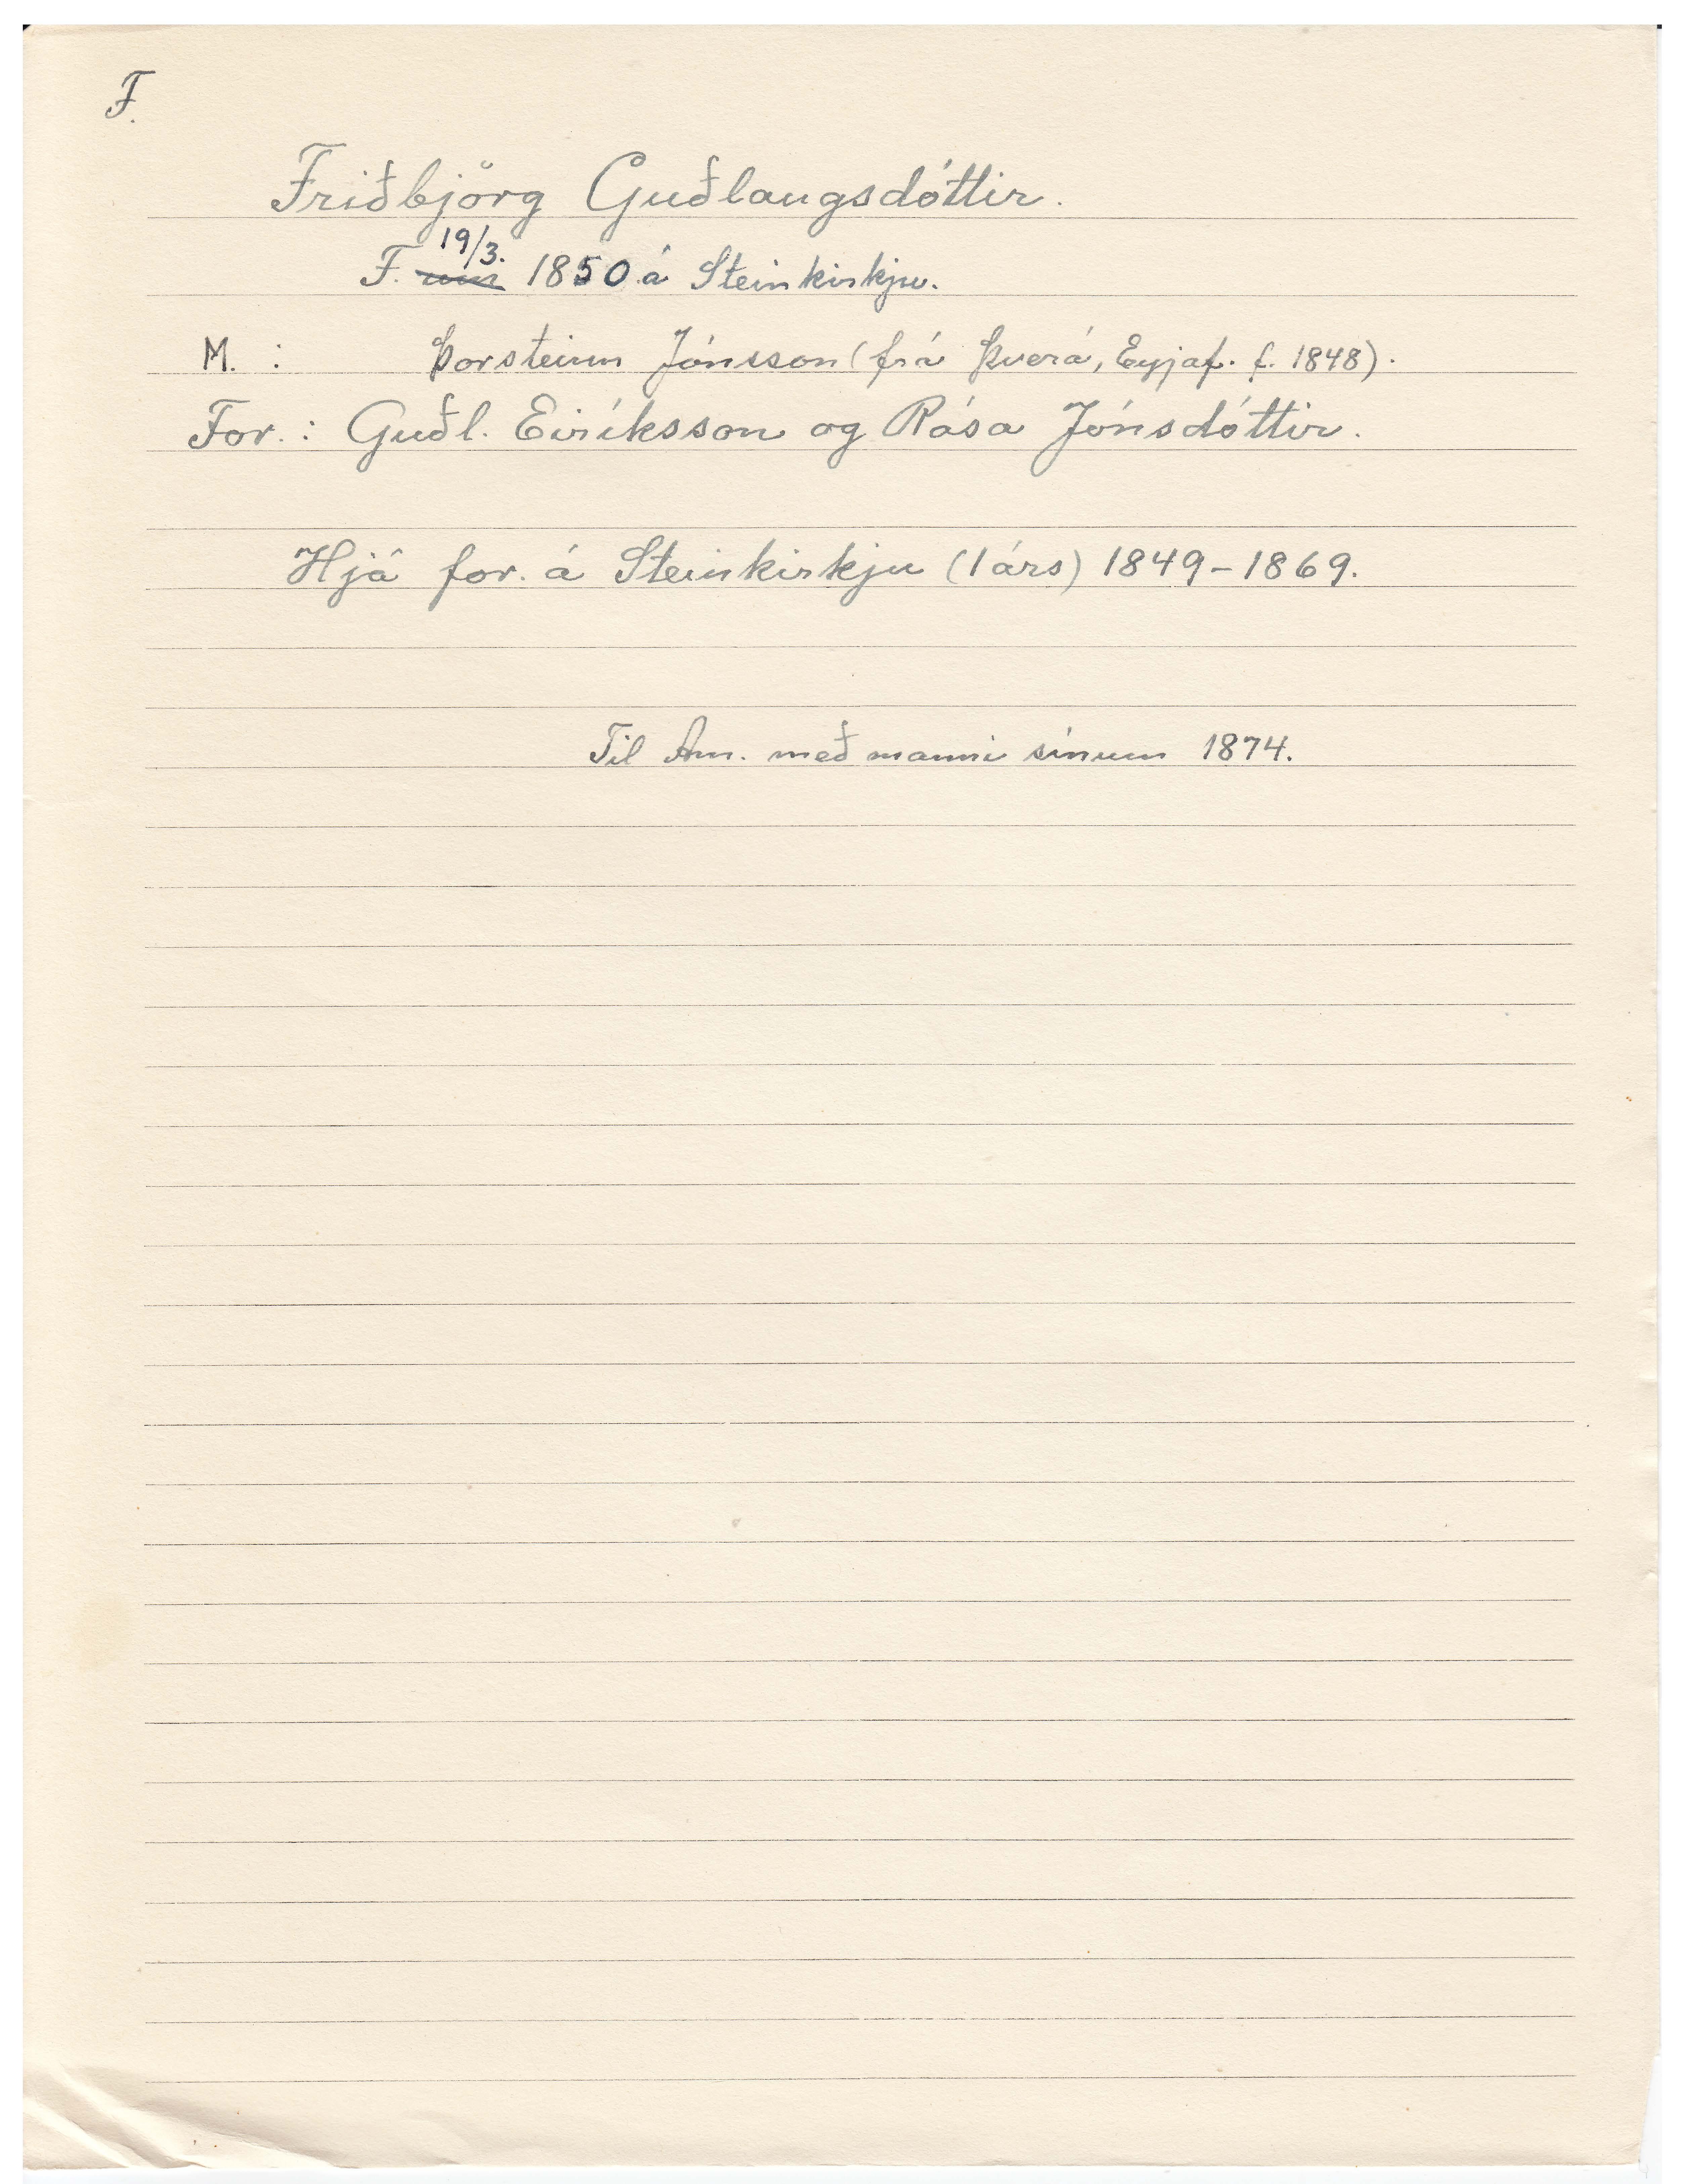 F.
Friðbjörg Guðlaugsdóttir.
19/3.
F. um 1850 á Steinkirkju.
M. : Þorsteinn Jónsson (frá Þverá, Eyjaf. f. 1848).
For. : Guðl. Eiríksson og Rósa Jónsdóttir.
Hjá for. á Steinkirkju (1 árs) 1849-1869.
Til Am. með manni sínum 1874.